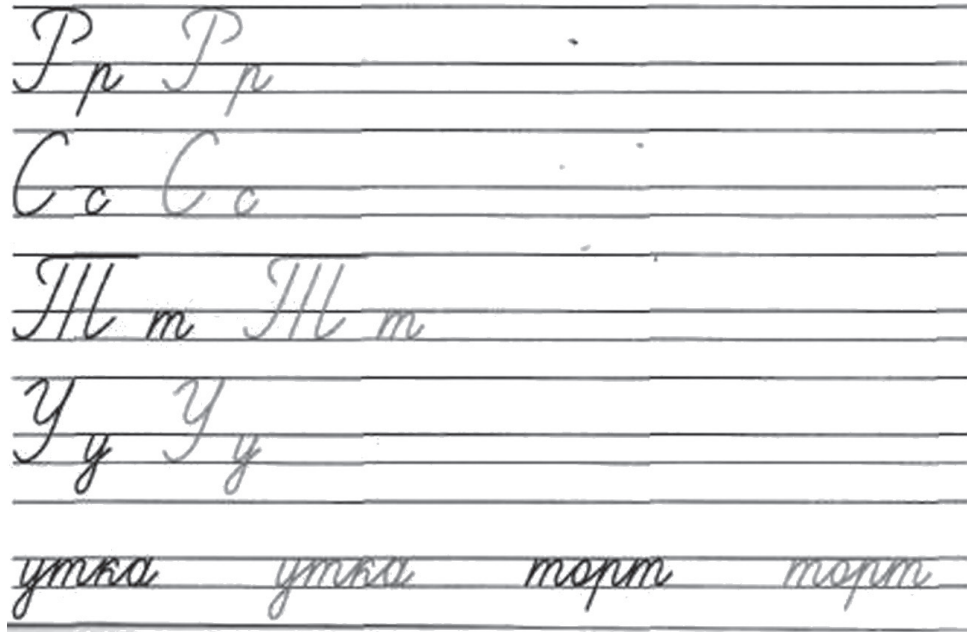 Рр Рр
Сс Сс
Тт Тт
Уу Уу
утка утка торт торт